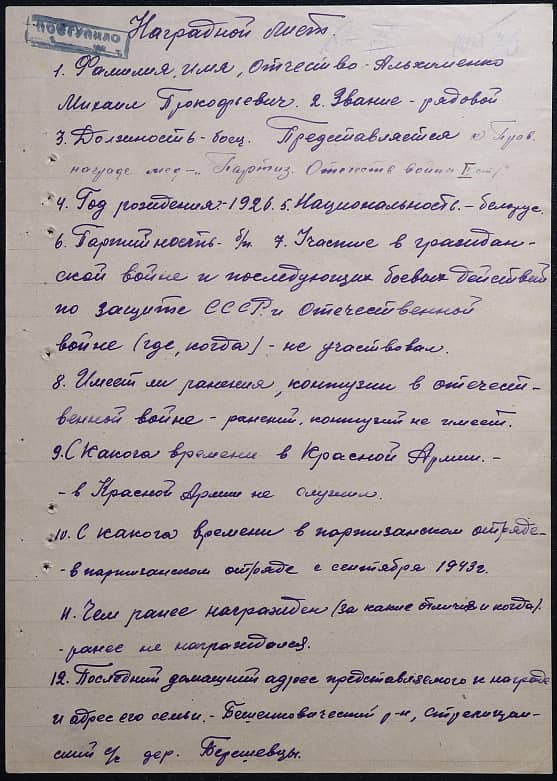 ПОСТУПИЛО
Наградной лист.
1. Фамилия, имя, отчество - Альхименко
Михаил Прокофьевич. 2. Звание - рядовой
3. Должность - боец. Представляется к Прав.
награде мед-"Партиз. Отечеств войны II ст."
4. Год рождения - 1926. 5. Национальность - белорус.
6. Партийность - б/п. 7. Участие в граждан-
ской войне и последующих боевых действий
по защите СССР и Отечественной
войне (где, когда) - не участвовал.
8. Имеет ли ранения, контузии в отечест-
венной войне - ранений, контузий не имеет.
9. С какого времени в Красной Армии. -
- в Красной Армии не служил.
10. С какого времени в партизанском отряде -
- в партизанском отряде с сентября 1943 г.
11. Чем ранее награжден (за какие отличия и когда).
- ранее не награждался.
12. Последний домашний адрес представляемого к награде
и адрес его семьи. - Бешенковический р-н, Стрелищан-
ский с/с дер.